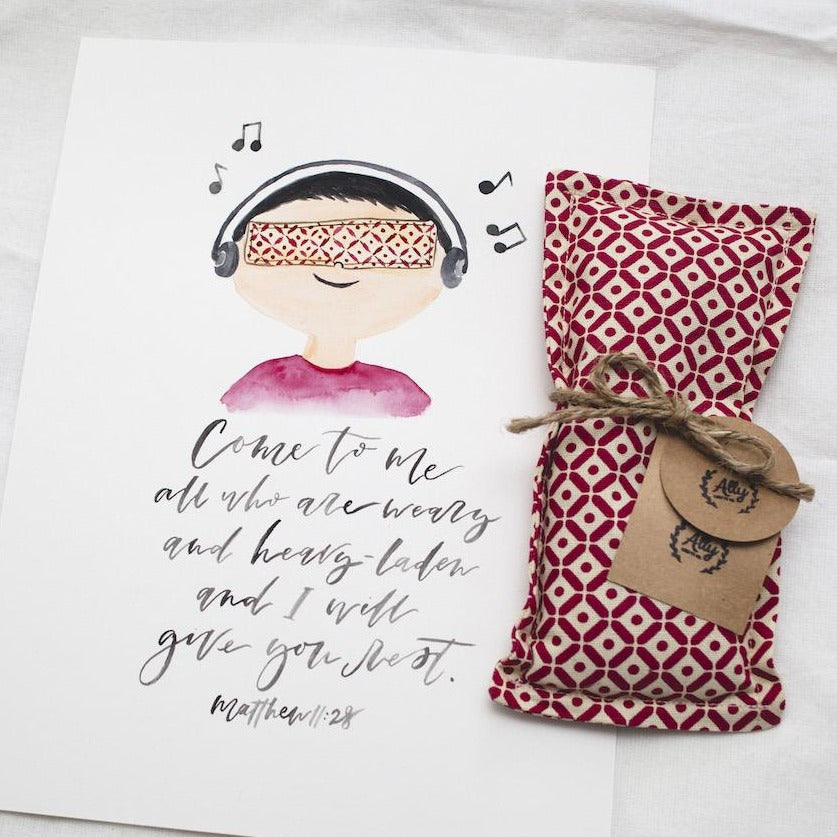 Come to me
all who are weary
and heavy-laden
and I will
give you rest.
Matthew 11:28
Ally
Ally